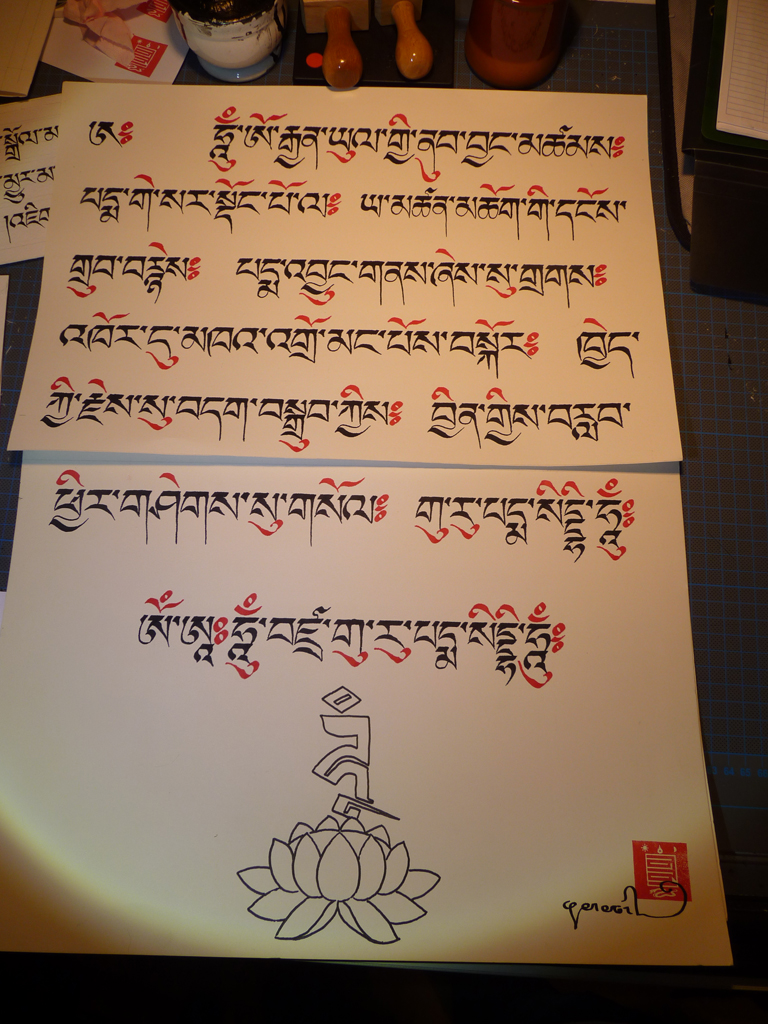 ཨ༔ ཧཱུྂ་ཨོ་རྒྱན་ཡུལ་གྱི་ནུབ་བྱང་མཚམས༔
པདྨ་གེ་སར་སྡོང་པོ་ལ༔ ཡ་མཚན་མཆོག་གི་དངོས་
གྲུབ་བརྙེས༔ པདྨ་འབྱུང་གནས་ཞེས་སུ་གྲགས༔
འཁོར་དུ་མཁའ་འགྲོ་མང་པོས་བསྐོར༔ ཁྱེད་
ཀྱི་རྗེས་སུ་བདག་བསྒྲུབ་ཀྱིས༔ བྱིན་གྱིས་བརླབ་
ཕྱིར་གཤེགས་སུ་གསོལ༔ གུ་རུ་པདྨ་སིདྡྷི་ཧཱུྂ༔
ཨོཾ་ཨཱཿཧཱུྂ་བཛྲ་གུ་རུ་པདྨ་སིདྡྷི་ཧཱུྂ༔